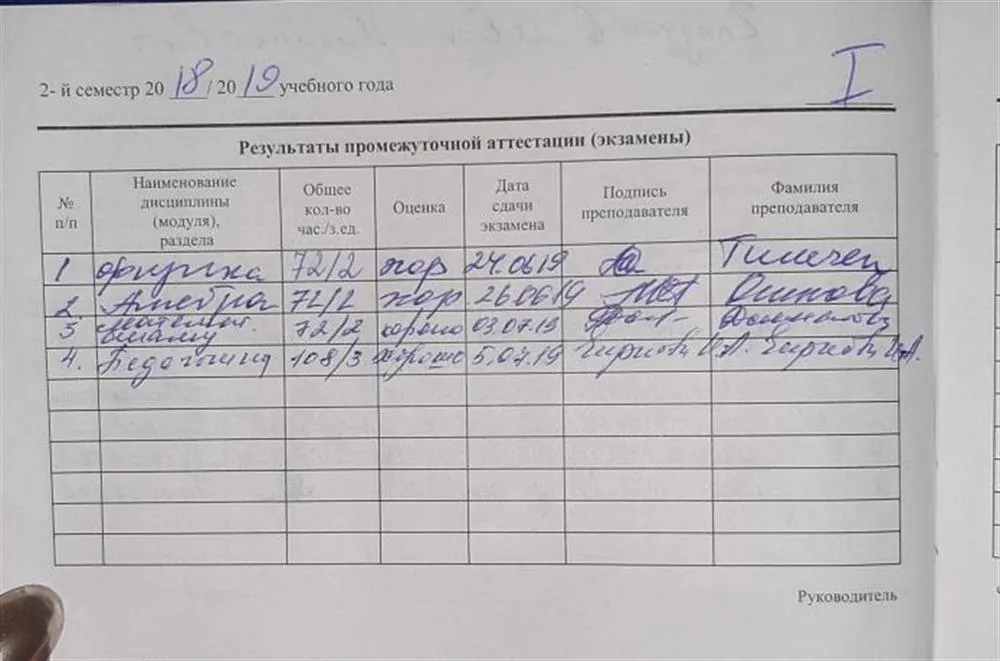 2- й семестр 20 18 / 20 19 учебного года
I
Результаты промежуточной аттестации (экзамены)
№ п/п Наименование дисциплины (модуля), раздела Общее кол-во час./з.ед. Оценка Дата сдачи экзамена Подпись преподавателя Фамилия преподавателя
1 физика 72/2 хор 24.06.19
2. Алгебра 72/2 хор 26.06.19 Осипова
3 Математ. анализ 72/2 хорошо 03.07.19
4. Педагогика 108/3 хорошо 5.07.19
Руководитель